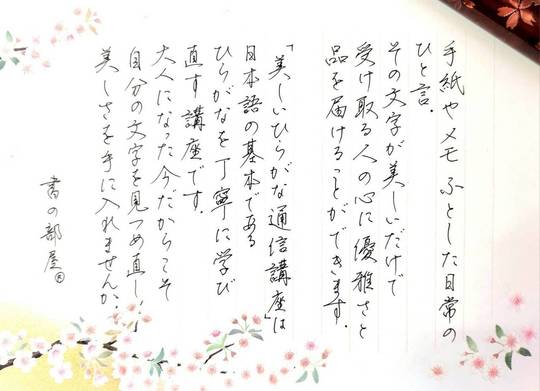 手紙やメモ ふとした日常の
ひと言.
その文字が美しいだけで
受け取る人の心に優雅さと
品を届けることができます.
「美しいひらがな通信講座」は
日本語の基本である
ひらがなを丁寧に学び
直す講座です.
大人になった今だからこそ
自分の文字を見つめ直し
美しさを手に入れませんか.
書の部屋